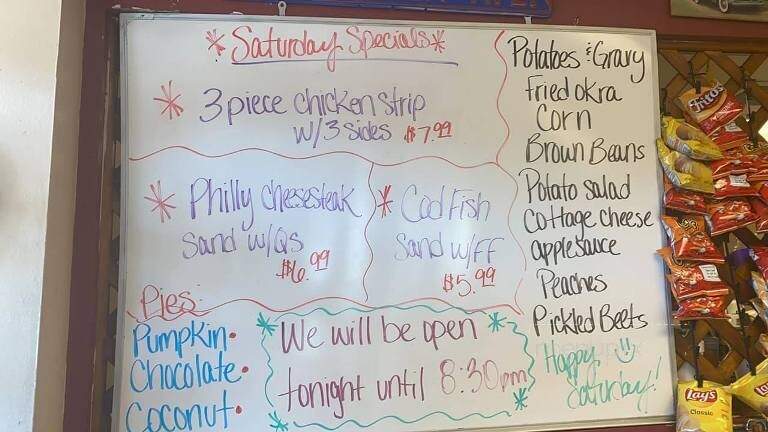 *Saturday Specials*
* 3 piece chicken strip
w/3 sides $7.99
* Philly cheesesteak
Sand w/Qs
$6.99
* Cod Fish
Sand w/FF
$5.99
Pies:
Pumpkin •
Chocolate •
Coconut •
* We will be open *
* tonight until 8:30pm *
Potatoes & Gravy
Fried okra
Corn
Brown Beans
Potato salad
Cottage cheese
applesauce
Peaches
Pickled Beets
Happy
Saturday!
Fritos
Lay's
Classic
Lay's